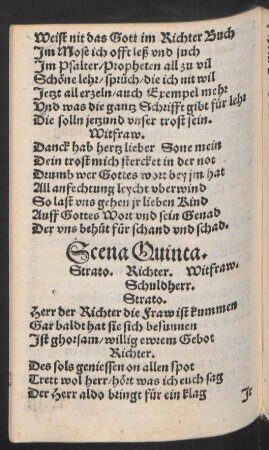 Weist nit das Gott im Richter Buch
Im Mose ich offt leß vnd such
Im Psalter/Propheten all zu vil
Schöne lehr/sprüch/die ich nit wil
Jetzt all erzeln/auch Exempel mehr
Vnd was die gantz Schrifft gibt für lehr
Die solln jetzund vnser trost sein.
Witfraw.
Danck hab hertz lieber Sone mein
Dein trost mich stercket in der not
Drumb wer Gottes wort bey jm hat
All anfechtung leycht vberwind
So last vns gehen jr lieben Kind
Auff Gottes Wort vnd sein Genad
Der vns behüt für schand vnd schad.
Scena Quinta.
Strato. Richter. Witfraw.
Schuldherr.
Strato.
Herr der Richter die Fraw ist kummen
Gar baldt hat sie sich besunnen
Ist ghorsam/willig ewrem Gebot
Richter.
Des sols geniessen on allen spot
Trett wol herr/hört was ich euch sag
Der Herr aldo bringt für ein klag
Je